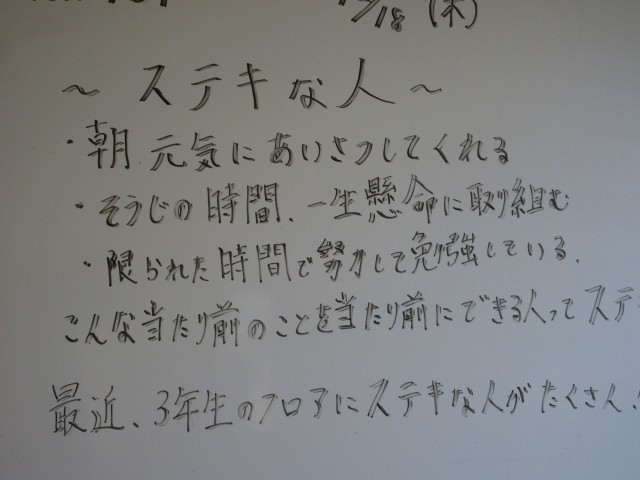 12/18 (木)
～ ステキな人 ～
・朝 元気にあいさつしてくれる
・そうじの時間、一生懸命に取り組む
・限られた時間で努力して勉強している。
こんな当たり前のことを当たり前にできる人ってステ
最近、3年生のフロアにステキな人がたくさん